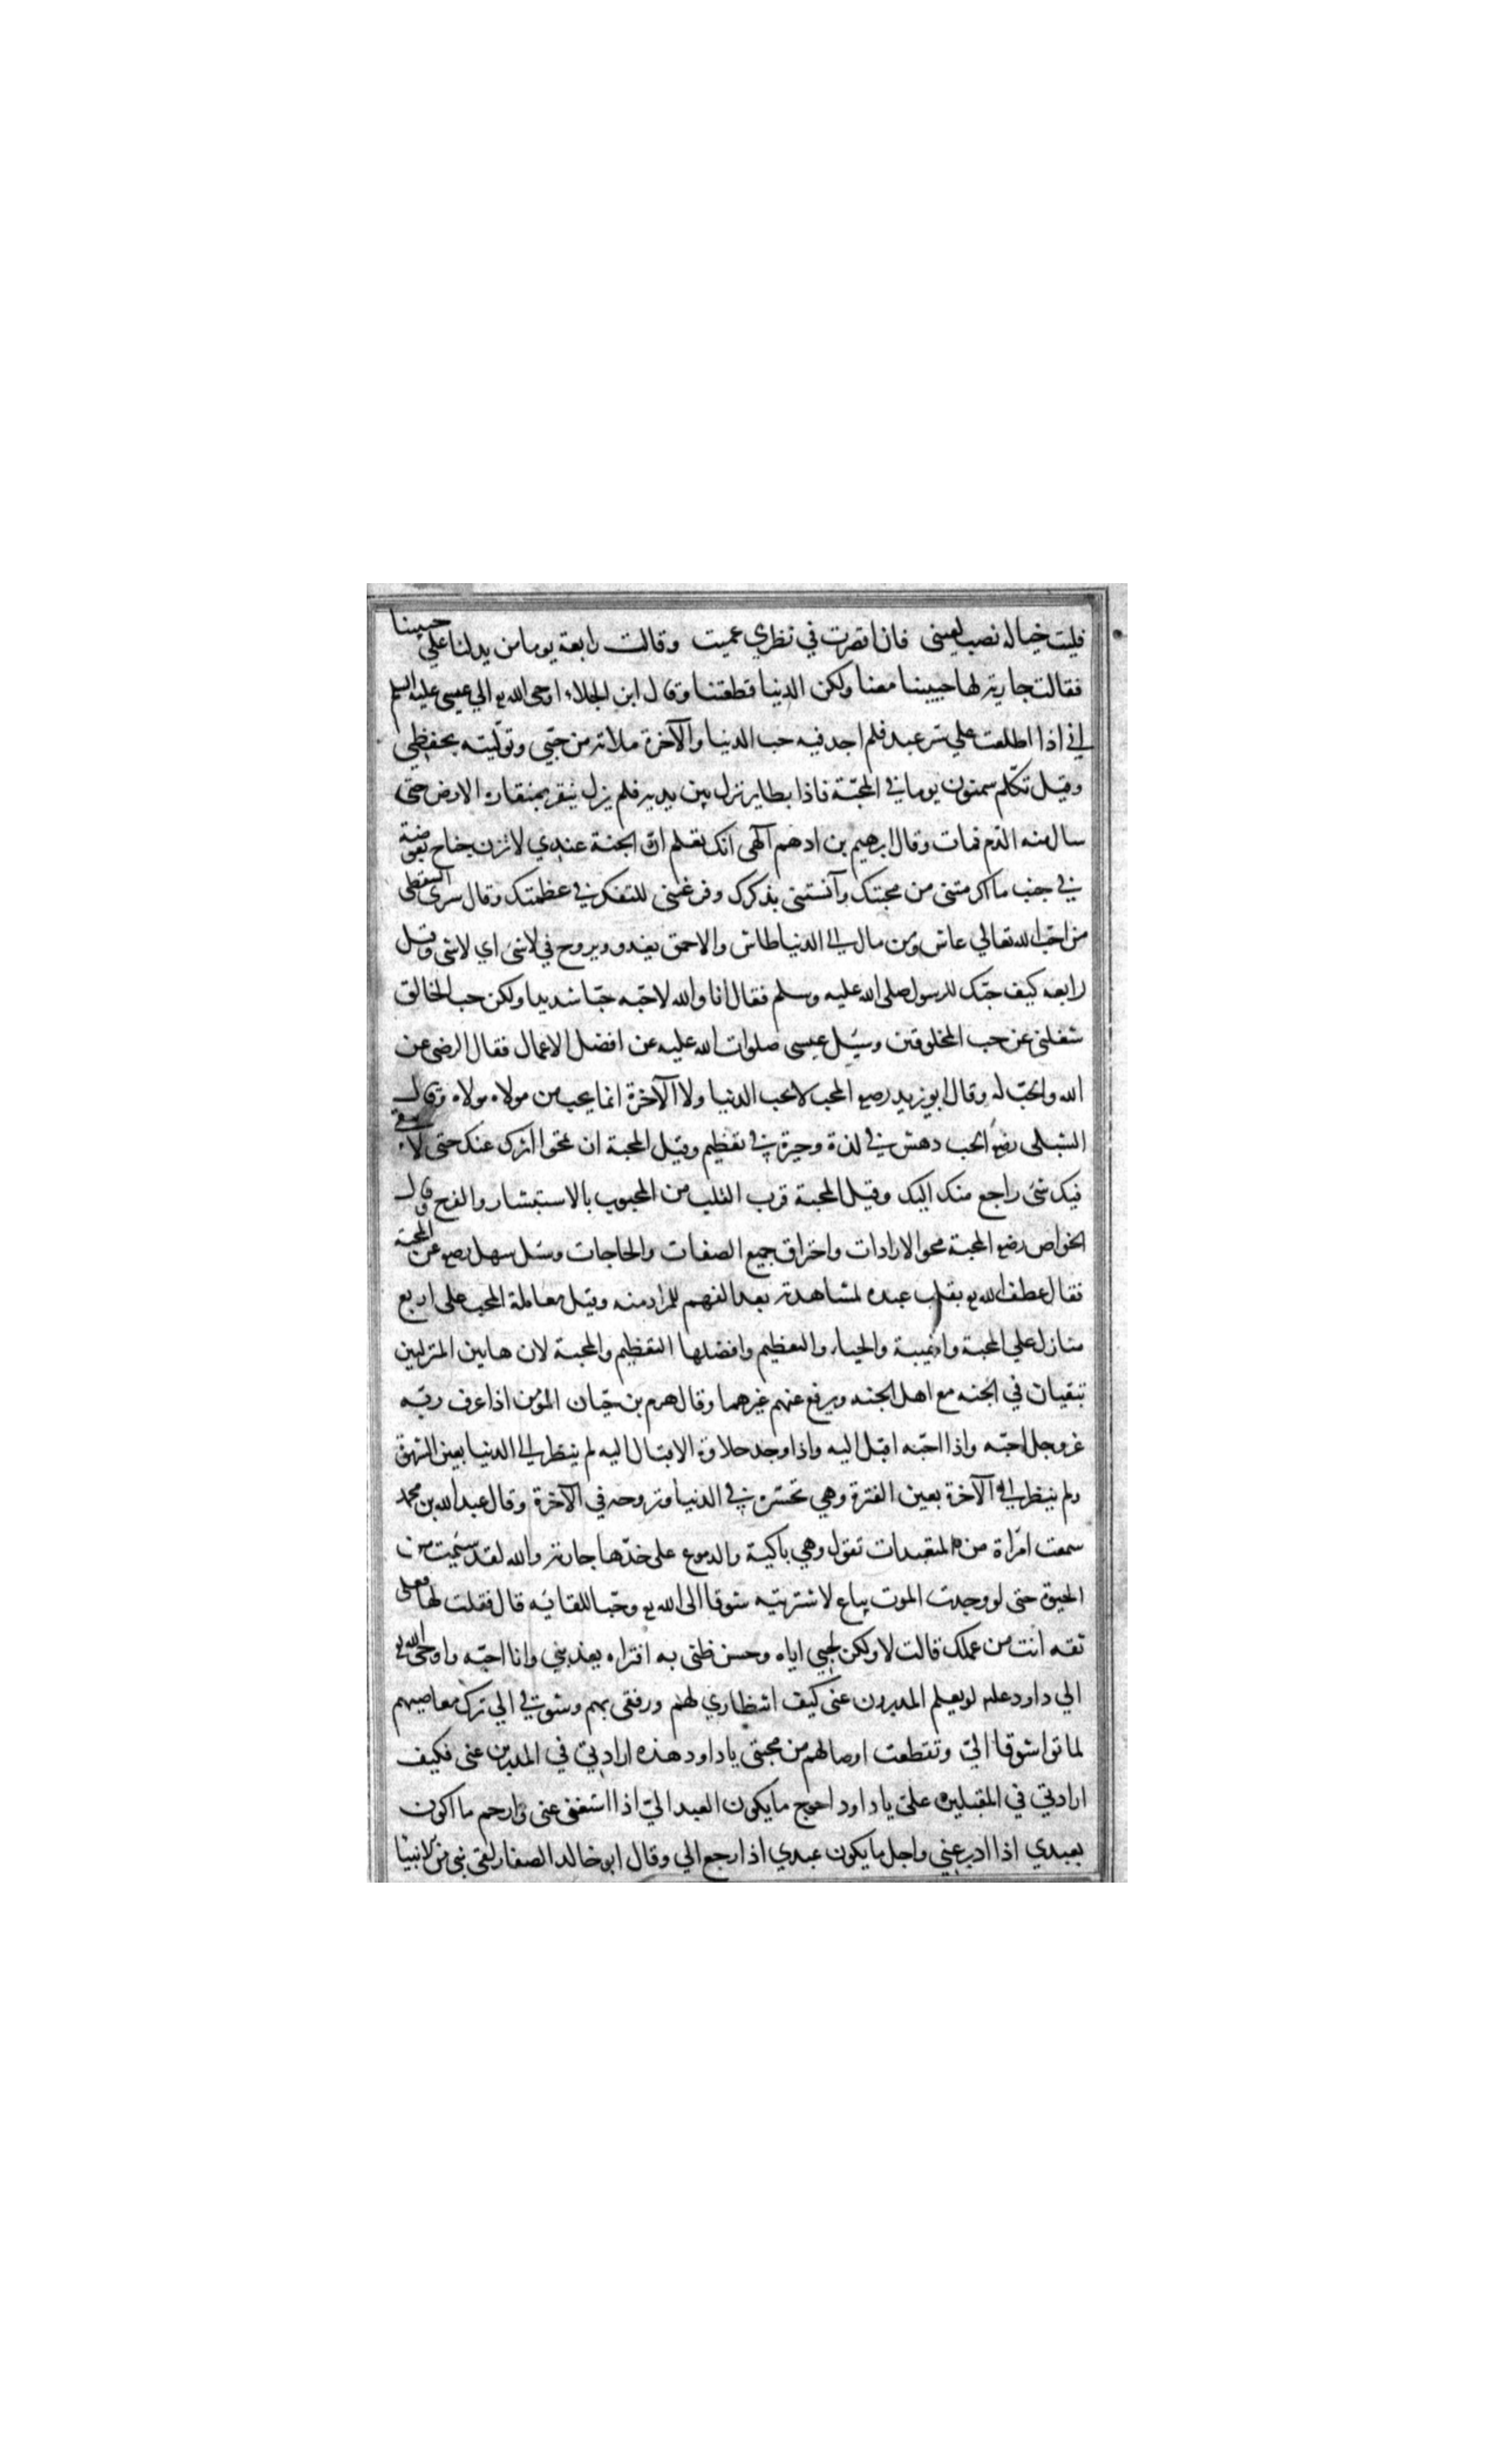 فليت خياله نصب لعينى فان اقصرت في نظري عميت وقالت رابعة يوما من يدلنا على حبيبنا
فقالت جارية لها حبيبنا معنا ولكن الدنيا قطعتنا وقال ابن الجلاء اوحى الله تع الي عيسى عليه السلم
اني اذا اطلعت علي سر عبد فلم اجد فيه حب الدنيا والآخرة ملاته من حبّي وتولّيته بحفظي
وقيل تكلّم سمنون يوما في المحبّة فاذا بطاير نزل بين يديه فلم يزل ينقر بمنقاره الارض حتى
سال منه الدّم فمات وقال ابرهيم بن ادهم آلهى انك تعلم ان الجنة عندي لا تزن جناح بعوضة
في جنب ما اكرمتنى من محبتك وآنستنى بذكرك وفرغتنى للتفكر في عظمتك وقال سرى السقطى
من احبّ الله تعالي عاش ومن مال الى الدنيا طاش والاحمق يغدو ويروح في لاشى اي لاشى وقيل
رابعه كيف حبّك للرسول صلى الله عليه وسلم فقال انا والله لاحبّه حبّا شديدا ولكن حب الخالق
شغلنى عن حب المخلوقين وسئل عيسى صلوات الله عليه عن افضل الاعمال فقال الرضى عن
الله والحبّ له وقال ابويزيد رضع المحب لا يحب الدنيا ولا الآخرة انما يحب من مولاه مولاه وقال
الشبلى رضع الحب دهش في لذة وحيرة في تعظيم وقيل المحبة ان تمحوا اثرك عنك حتى لا يبقى
فيك شى راجع منك اليك وقيل المحبة قرب القلب من المحبوب بالاستبشار والفرح وقال
الخواص رضع المحبة محو الارادات واحتراق جميع الصفات والحاجات وسئل سهل رضع عن المحبة
فقال عطف الله تع بقلب عبده لمشاهدته بعد الفهم للمراد منه وقيل معاملة المحب على اربع
منازل علي المحبة والهيبة والحياء والتعظيم وافضلها التعظيم والمحبة لان هاتين المنزلتين
تبقيان في الجنه مع اهل الجنه ويرفع عنهم غيرهما وقال هرم بن حيّان المؤمن اذا عرف ربّه
عز وجل احبّه واذا احبّه اقبل اليه واذا وجد حلاوة الاقبال اليه لم ينظر الى الدنيا بعين الشهوة
ولم ينظر الى الآخرة بعين الفترة وهي تحسّره في الدنيا وتروحه في الآخرة وقال عبد الله بن محمد
سمعت امرّاة من المتعبدات تقول وهي باكية والدموع على خدّها جارية والله لقد سئمت من
الحيوة حتى لو وجدت الموت يباع لاشتريته شوقا الى الله تع وحبّا للقائه قال فقلت لها فعلى
ثقه أنت من عملك قالت لا ولكن لحبي اياه وحسن ظنى به افتراه يعذبني وانا احبّه واوحى الله تع
الي داود علم لو يعلم المدبرون عنى كيف انتظاري لهم ورفقى بهم وشوقي الي ترك معاصيهم
لماتوا شوقا اليّ وتقطعت اوصالهم من محبتى يا داود هذه ارادتي في المدبرين عنى فكيف
ارادتي في المقبلين علىّ يا داود احوج ما يكون العبد اليّ اذا استغنى عنى وارحم ما اكون
بعبدي اذا ادبر عنّي واجل ما يكون عبدي اذا رجع الي وقال ابو خالد الصفار لقى نبى من الانبيا